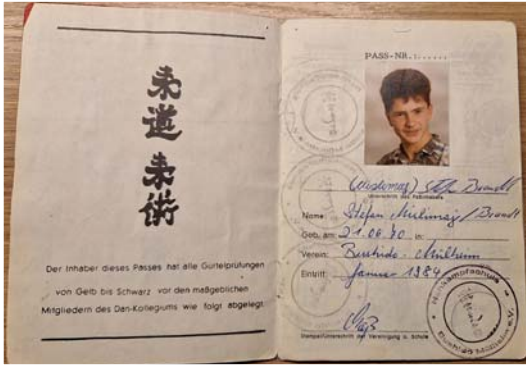 柔
道
柔
術
Der Inhaber dieses Passes hat alle Gürtelprüfungen
von Gelb bis Schwarz vor den maßgeblichen
Mitgliedern des Dan-Kollegiums wie folgt abgelegt
PASS-NR.:......
Brandt
Unterschrift des Paßinhabers
Name: Stefan / Brandt
Geb. am: 21.06.70 in:
Verein: Bushido - Mülheim
Eintritt: Januar 1984
Stempel/Unterschrift der Vereinigung o. Schule